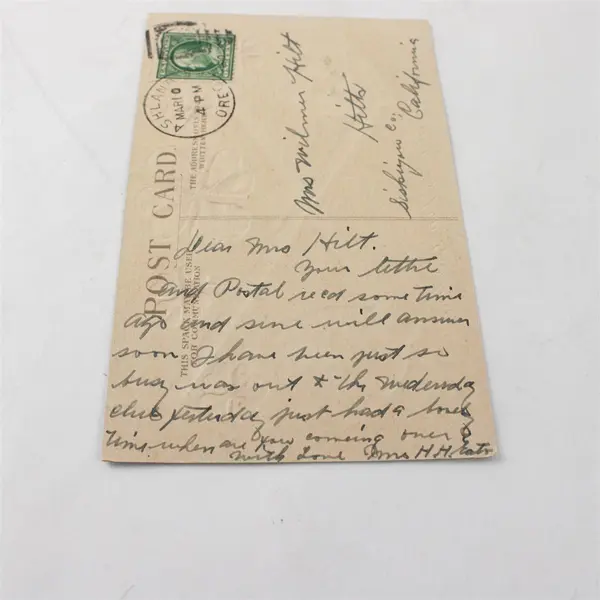 ASHLAND
MAR 10
4 PM
OREG
POST CARD
THE ADDRESS
THIS SPACE MAY BE USED
FOR COMMUNICATION
Mrs Wilmer Hilt
Hilts
Siskiyou Co.
California
Dear Mrs Hilt.
Your lettre
and Postal recd some time
ago and sure will answer
soon I have been just so
busy was out to the Wedensday
club yesturday just had a
time when are you coming over
with Love Mrs H.H. Eaton